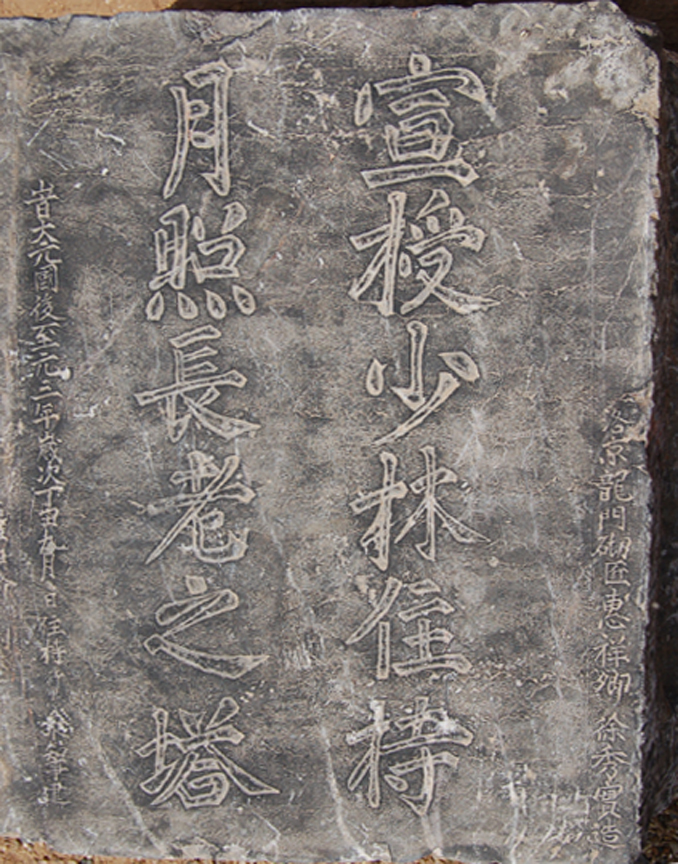 洛京龍門砌匠惠祥卿徐秀實造
宣授少林住持
月照長老之塔
峕大元國後至元三年歲次丁丑九月日住持等建